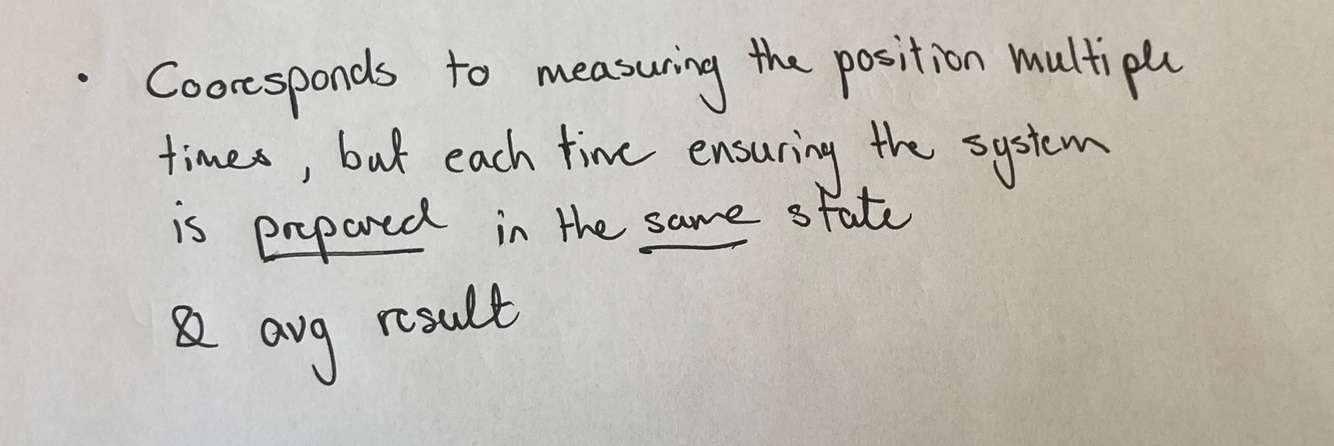 • Cooresponds to measuring the position multiple
times, but each time ensuring the system
is prepared in the same state
& avg result